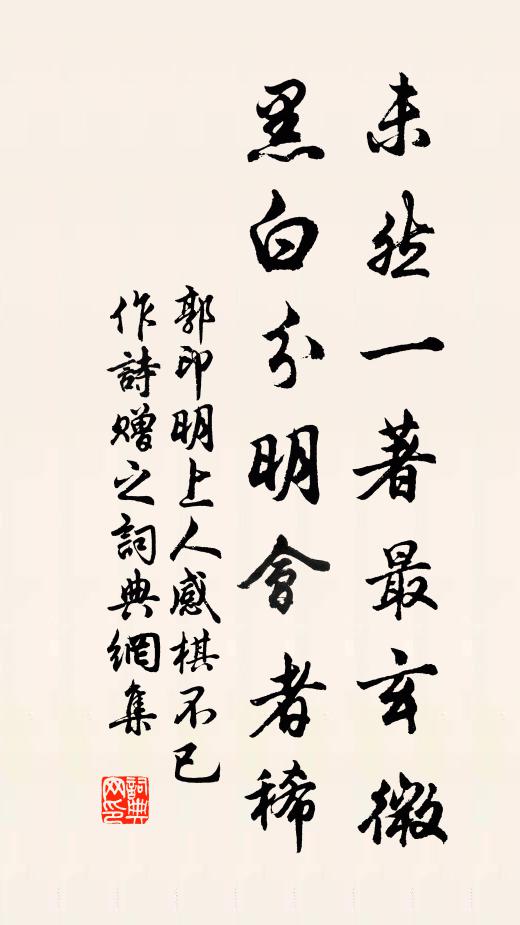 未然一著最玄微
黑白分明會者稀
郭印明上人感棋不已
作詩贈之詞典網集
詞典
网印